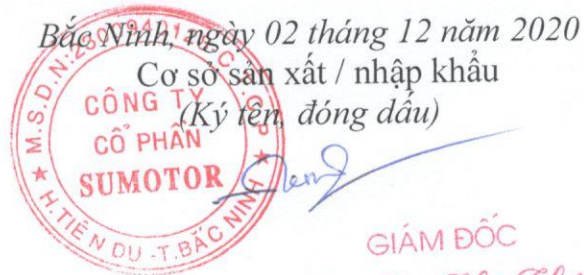 Bắc Ninh, ngày 02 tháng 12 năm 2020
Cơ sở sản xất / nhập khẩu
(Ký tên, đóng dấu)
CÔNG TY
CỔ PHẦN
SUMOTOR
M.S.D.N:
C.T.C.P
H.TIÊN DU -T.BẮC NINH
GIÁM ĐỐC